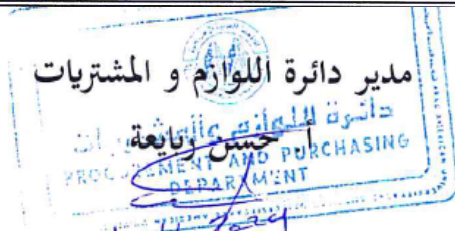 مدير دائرة اللوازم و المشتريات
دائرة اللوازم والمشتريات
أ. حسن ربايعة
PROCUREMENT AND PURCHASING
DEPARTMENT